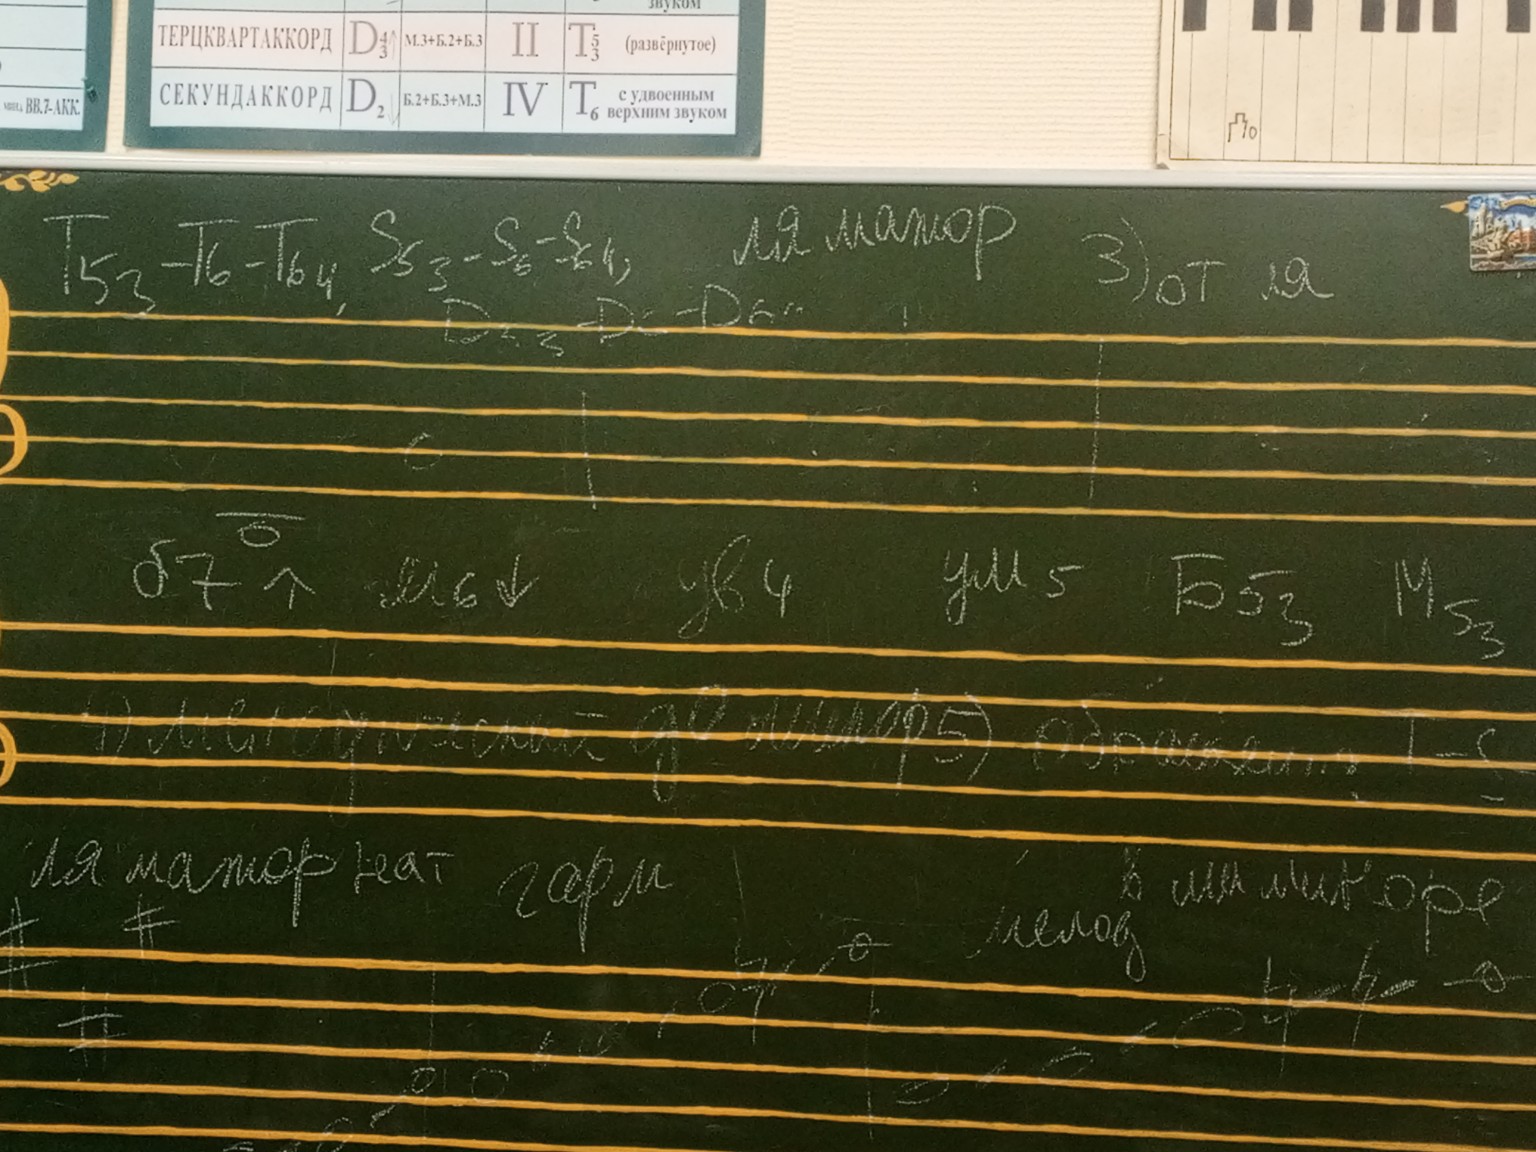 звуком
ТЕРЦКВАРТАККОРД D43 М.3+Б.2+Б.3 II T53 (развёрнутое)
ВВ.7-АКК.
СЕКУНДАККОРД D2 Б.2+Б.3+М.3 IV T6 с удвоенным верхним звуком
До
T53-T6-T64, S53-S6-S64, ля мажор 3) от ля
D53-D6-D64
б7↑ м6↓ ув4 ум5 Б53 М53
1) мелодический до минор 5) обращения T-S
ля мажор нат гарм мелод
в ля миноре